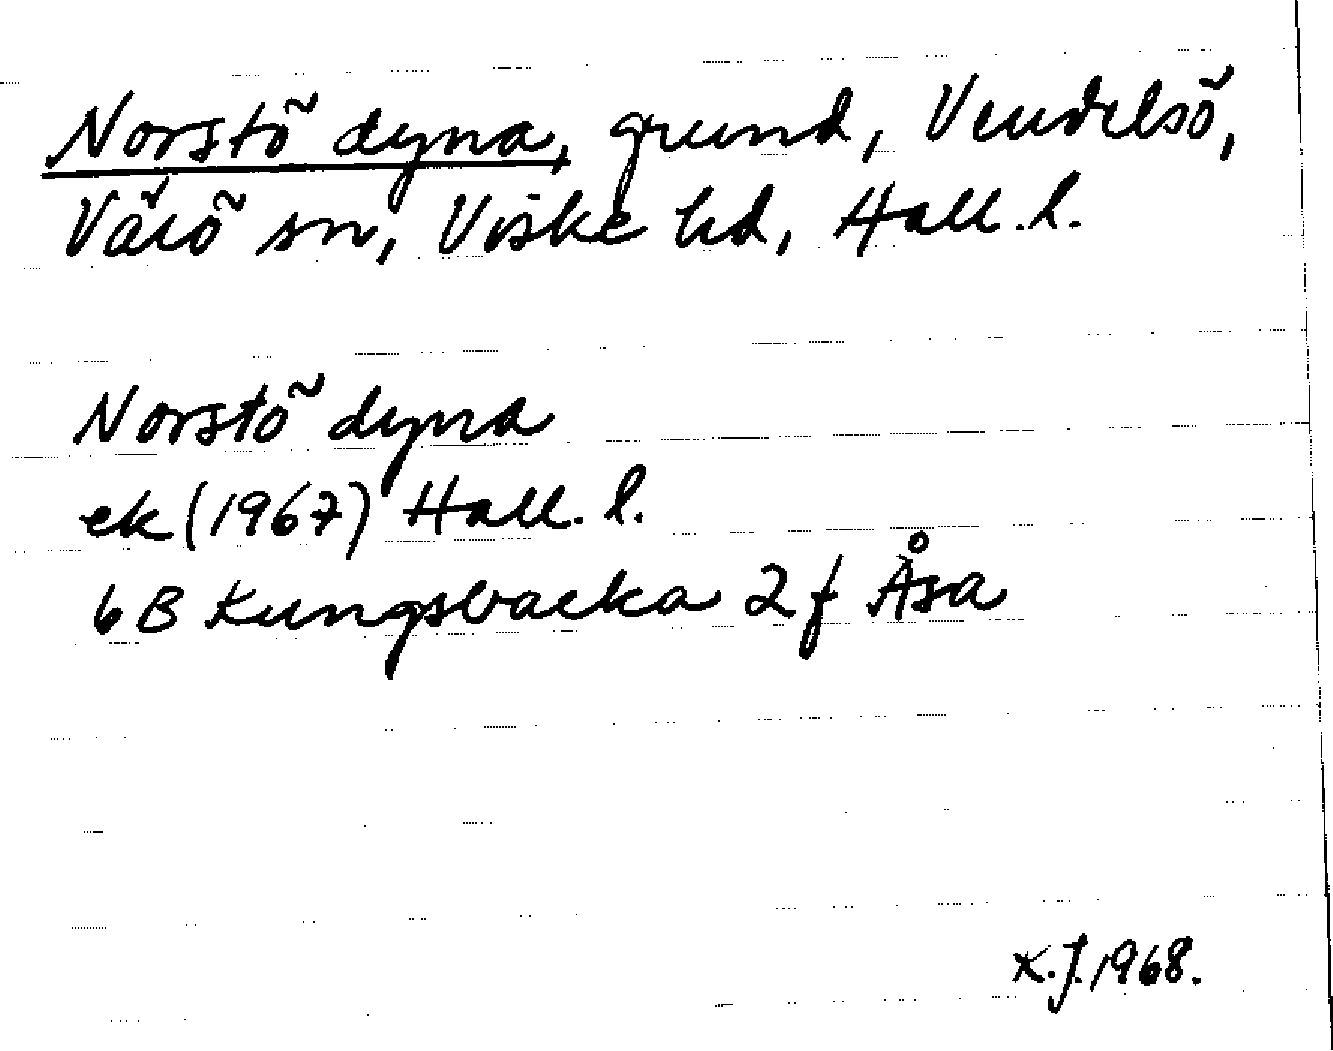 Norstö dyna, grund, Vendelsö,
Värö sn, Viske hd, Hall. l.
Norstö dyna
ek (1967) Hall. l.
6B Kungsbacka 2f Åsa
K.J. 1968.